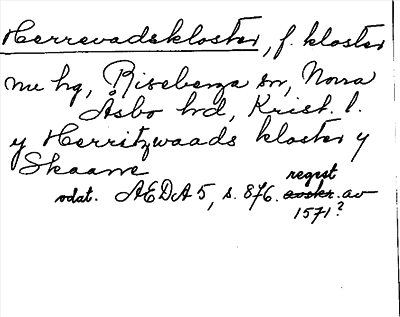 Herrevadskloster, f. kloster
nu hg, Riseberga sn, Norra
Åsbo hrd, Krist. l.
y Herritzwaads kloster y
Skaane
odat. AEDA 5, s. 876. regist avskr. av
1571?